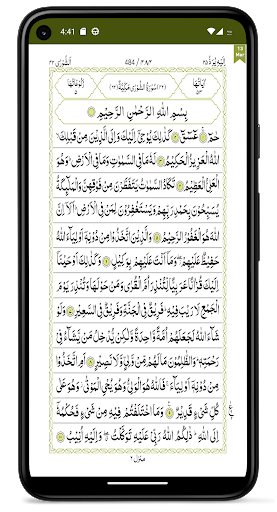 4:41
اَلشُّوْرٰى ٤٢
484 / ٤٨٤
اِلَيْهِ يُرَدُّ ٢٥
13
Mar
اٰيَاتُهَا ٥٣
(٤٢) سُوْرَةُ الشُّوْرٰى مَكِّيَّةٌ (٦٢)
رُكُوْعَاتُهَا ٥
بِسْمِ اللّٰهِ الرَّحْمٰنِ الرَّحِيْمِ
حٰمٓ ۚ عٓسٓقٓ كَذٰلِكَ يُوْحِيْٓ اِلَيْكَ وَاِلَى الَّذِيْنَ مِنْ قَبْلِكَ
اللّٰهُ الْعَزِيْزُ الْحَكِيْمُ لَهٗ مَا فِي السَّمٰوٰتِ وَمَا فِي الْاَرْضِ ۗ وَهُوَ
الْعَلِيُّ الْعَظِيْمُ تَكَادُ السَّمٰوٰتُ يَتَفَطَّرْنَ مِنْ فَوْقِهِنَّ وَالْمَلٰٓئِكَةُ
يُسَبِّحُوْنَ بِحَمْدِ رَبِّهِمْ وَيَسْتَغْفِرُوْنَ لِمَنْ فِي الْاَرْضِ ۗ اَلَآ اِنَّ
اللّٰهَ هُوَ الْغَفُوْرُ الرَّحِيْمُ وَالَّذِيْنَ اتَّخَذُوْا مِنْ دُوْنِهٖٓ اَوْلِيَآءَ اللّٰهُ
حَفِيْظٌ عَلَيْهِمْ ۖ وَمَآ اَنْتَ عَلَيْهِمْ بِوَكِيْلٍ وَكَذٰلِكَ اَوْحَيْنَآ
اِلَيْكَ قُرْاٰنًا عَرَبِيًّا لِّتُنْذِرَ اُمَّ الْقُرٰى وَمَنْ حَوْلَهَا وَتُنْذِرَ يَوْمَ
الْجَمْعِ لَا رَيْبَ فِيْهِ ۗ فَرِيْقٌ فِي الْجَنَّةِ وَفَرِيْقٌ فِي السَّعِيْرِ وَلَوْ
شَآءَ اللّٰهُ لَجَعَلَهُمْ اُمَّةً وَّاحِدَةً وَّلٰكِنْ يُّدْخِلُ مَنْ يَّشَآءُ فِيْ
رَحْمَتِهٖ ۗ وَالظّٰلِمُوْنَ مَا لَهُمْ مِّنْ وَّلِيٍّ وَّلَا نَصِيْرٍ اَمِ اتَّخَذُوْا
مِنْ دُوْنِهٖٓ اَوْلِيَآءَ ۚ فَاللّٰهُ هُوَ الْوَلِيُّ وَهُوَ يُحْيِ الْمَوْتٰى ۖ وَهُوَ عَلٰى
كُلِّ شَيْءٍ قَدِيْرٌ وَمَا اخْتَلَفْتُمْ فِيْهِ مِنْ شَيْءٍ فَحُكْمُهٗٓ
اِلَى اللّٰهِ ۗ ذٰلِكُمُ اللّٰهُ رَبِّيْ عَلَيْهِ تَوَكَّلْتُ ۖ وَاِلَيْهِ اُنِيْبُ
مَنْزِل ٦